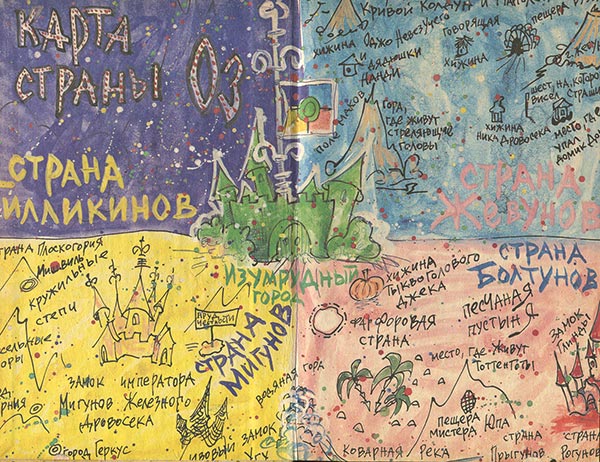 КАРТА
СТРАНЫ ОЗ
СТРАНА
ИЛЛИКИНОВ
Кривой Колдун и
хижина Оджо Невезучего
и дядюшки
Нанди
Говорящая
хижина
пещера
шест, на котором
висел
страши
хижина
Ника Дровосека
место где
упал
домик До
поле маков
гора,
где живут
стреляющие
головы
СТРАНА
ЖЕВУНОВ
ИЗУМРУДНЫЙ
ГОРОД
СТРАНА
МИГУНОВ
страна Плоскогория
кружильные
степи
сельные
оры
ДРУЖ
замок императора
Мигунов Железного
Дровосека
©город Геркус
ивовый замок
Угу
ведяная
гора
хижина
Тыквоголового
Джека
СТРАНА
БОЛТУНОВ
Фарфоровая
страна
песчаная
пустыня
замок
Глинды
место, где живут
Тоттентоты
пещера
мистера Юпа
коварная река
страна
Прыгунов
страна
Рогунов